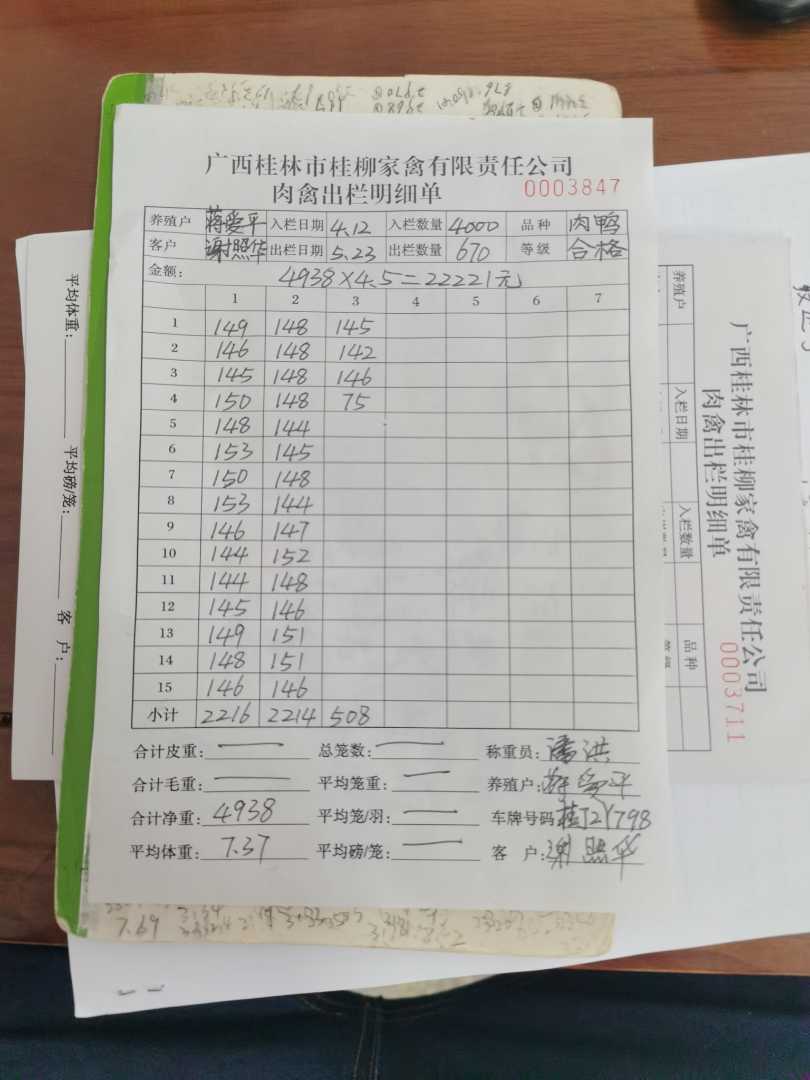 广西桂林市桂柳家禽有限责任公司
肉禽出栏明细单 0003847
养殖户 蒋爱平 入栏日期 4.12 入栏数量 4000 品种 肉鸭
客户 谢照华 出栏日期 5.23 出栏数量 670 等级 合格
金额: 4938×4.5=22221元
1 2 3 4 5 6 7
1 149 148 145
2 146 148 142
3 145 148 146
4 150 148 75
5 148 144
6 153 145
7 150 148
8 153 144
9 146 147
10 144 152
11 144 148
12 145 146
13 149 151
14 148 151
15 146 146
小计 2216 2214 508
合计皮重: — 总笼数: — 称重员: 潘洪
合计毛重: — 平均笼重: — 养殖户: 蒋爱平
合计净重: 4938 平均笼/羽: — 车牌号码 桂J2Y798
平均体重: 7.37 平均磅/笼: — 客 户: 谢照华
平均体重:
平均磅/笼:
客 户:
广西桂林市桂柳家禽有限责任公司
肉禽出栏明细单 0003711
养殖户 入栏日期 入栏数量 品种
7.69